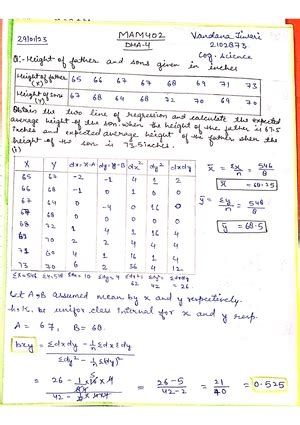 29/10/23 MAM402 Vandana Tiwari
DHA-4 2102873
Cog. Science
Q:- Height of father and sons given in inches
Height of father (X) 65 66 67 67 68 69 71 73
Height of sons (Y) 67 68 64 68 72 70 69 70
Obtain the two line of regression and calculate the expected
average height of the son when the height of the father is 67.5
inches and expected average height of the father when the
height of the son is 73.5 inches.
(i)
X Y dx=X-A dy=Y-B dx² dy² dxdy
65 67 -2 -1 4 1 2
66 68 -1 0 1 0 0
67 64 0 -4 0 16 0
67 68 0 0 0 0 0
68 72 1 4 1 16 4
69 70 2 2 4 4 4
71 69 4 1 16 1 4
73 70 6 2 36 4 12
x̄ = Σx/n = 546/8
x̄ = 68.25
ȳ = Σy/n = 548/8
ȳ = 68.5
Let A & B assumed mean by x and y respectively.
h & k be uniform class interval for x and y resp.
A = 67, B = 68.
bxy = (Σdxdy - 1/n Σdx Σdy) / (Σdy² - 1/n (Σdy)²)
= (26-5)/(42-2) = 21/40 = 0.525